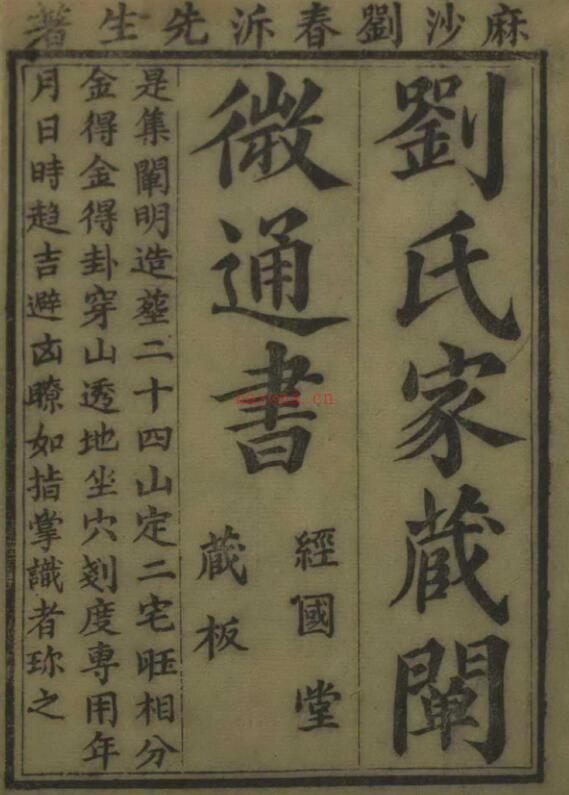 麻沙劉春沂先生著
劉氏家蔵闡
微通書
經國堂
蔵板
是集闡明造塟二十四山定二宅旺相分
金得金得卦穿山透地坐穴刻度專用年
月日時趋吉避凶瞭如指掌識者珎之